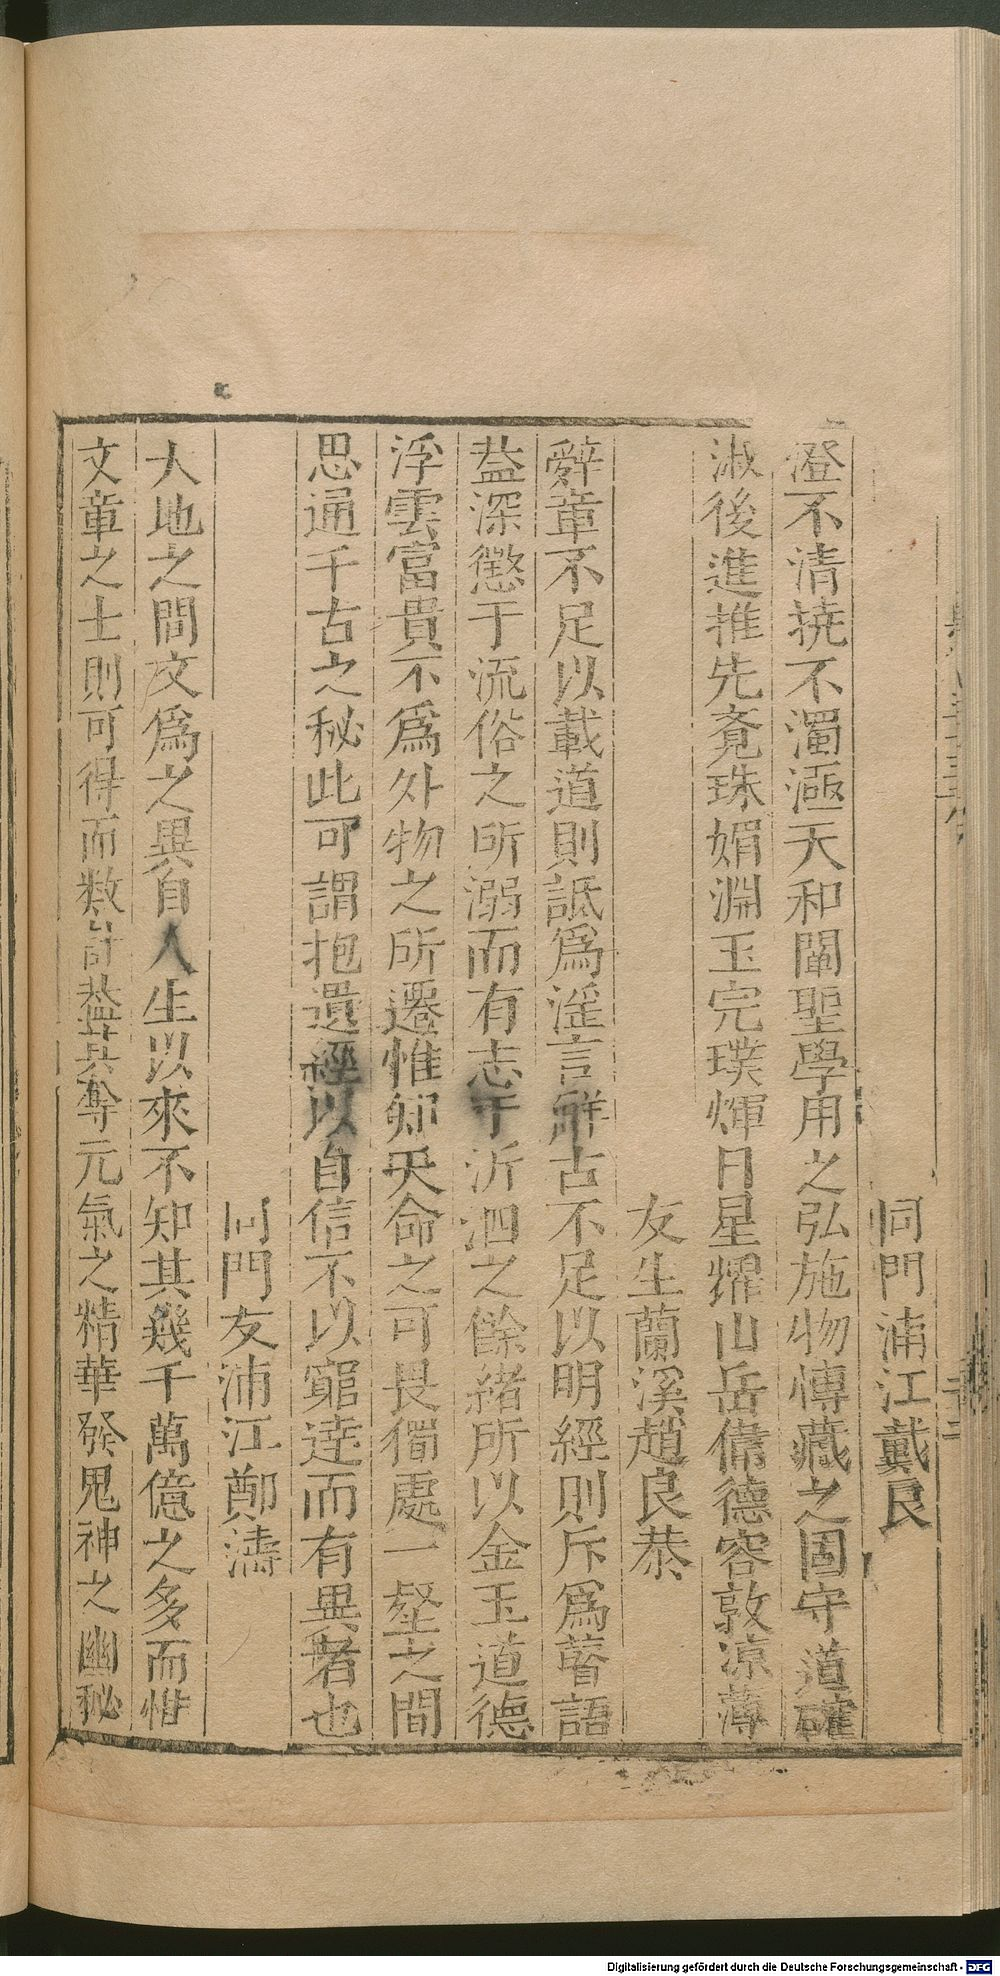 同門浦江戴良
澄不清撓不濁涵天和闡聖學用之弘施物慱藏之固守道確
淑後進推先覺珠媚淵玉完璞煇日星燿山岳俻德容敦凉薄
友生蘭溪趙良恭
辭章不足以載道則詆爲淫言辭古不足以明經則斥爲瞽語
益深懲于流俗之所溺而有志于沂泗之餘緒所以金玉道德
浮雲富貴不爲外物之所遷惟知天命之可畏獨處一壑之間
思通千古之秘此可謂抱遺經以自信不以窮達而有異者也
同門友浦江鄭濤
大地之間文爲之異自人生以來不知其幾千萬億之多而惟
文章之士則可得而数計葢其奪元氣之精華發鬼神之幽秘
Digitalisierung gefördert durch die Deutsche Forschungsgemeinschaft - DFG